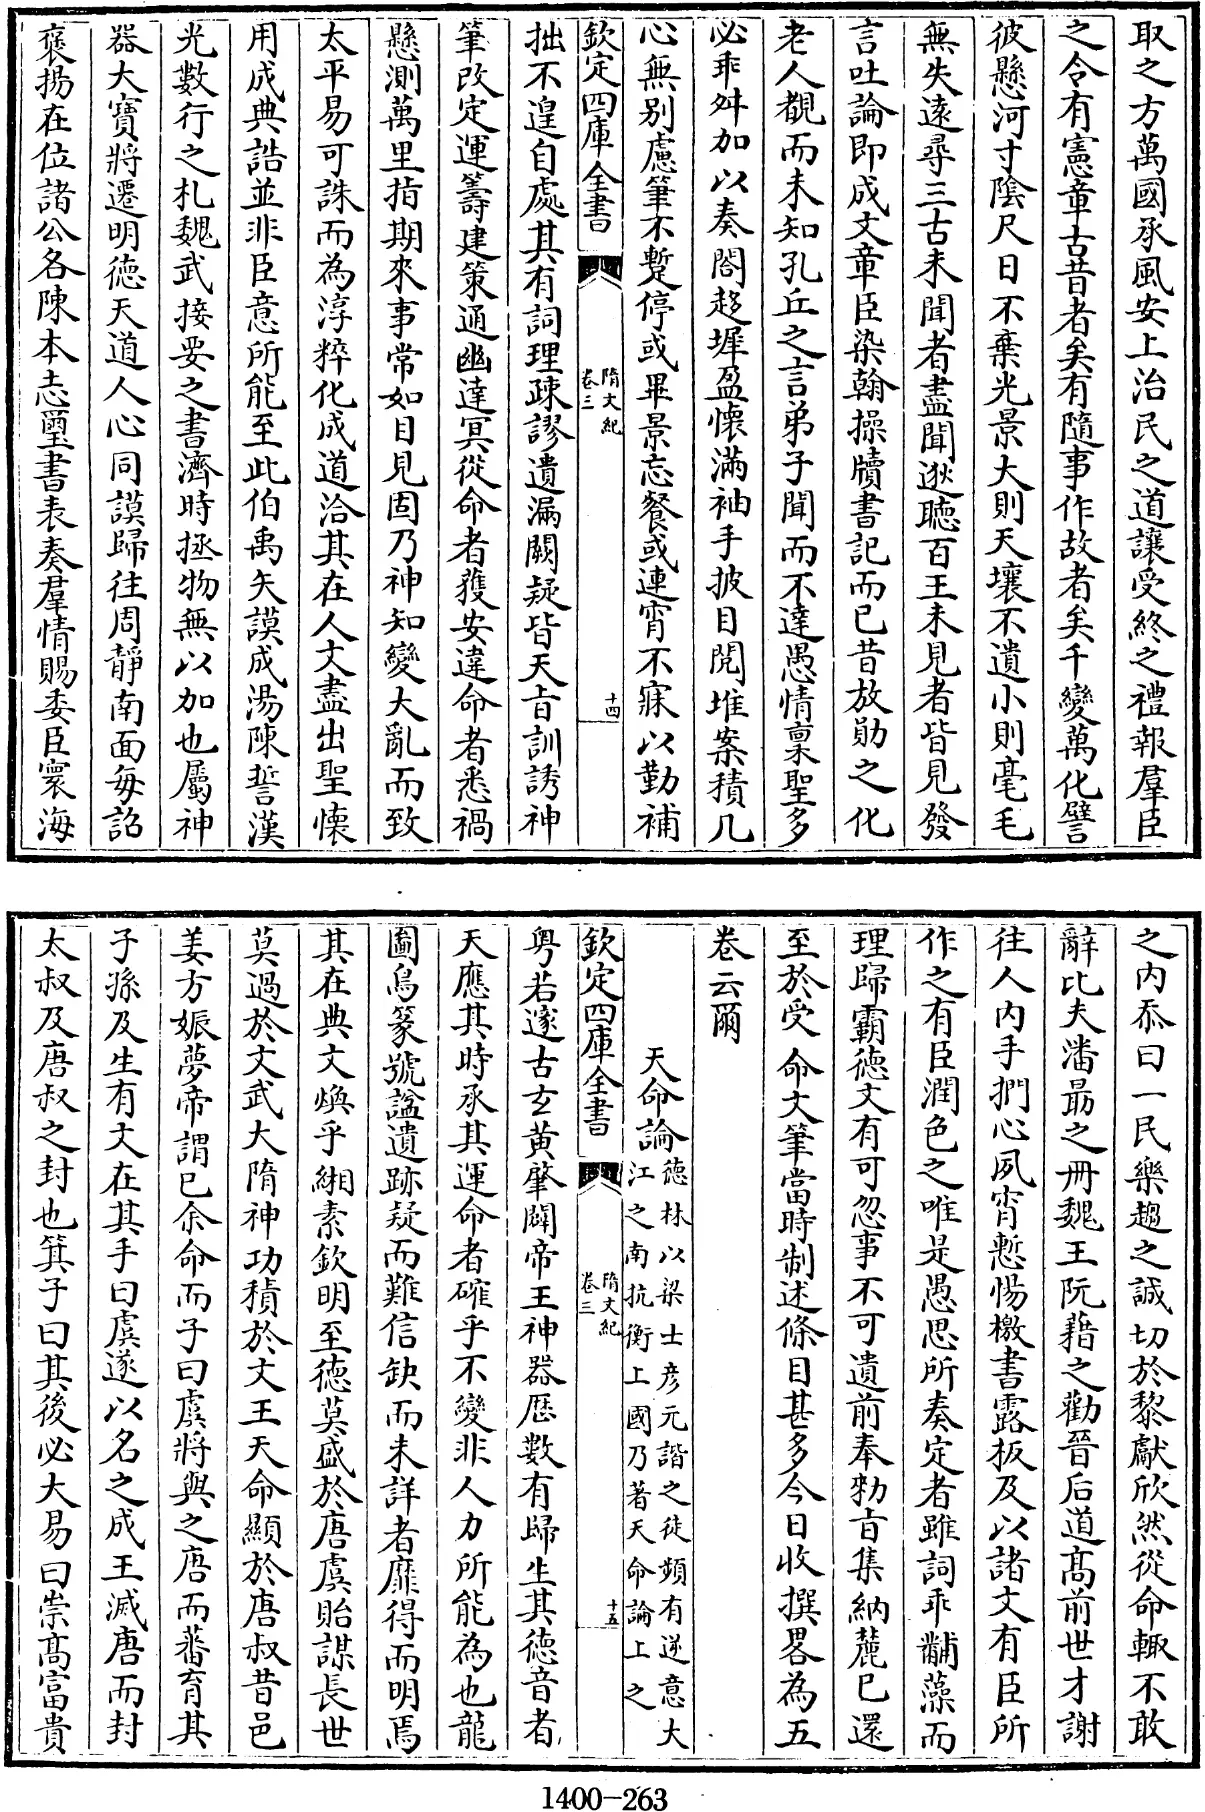 取之方萬國承風安上治民之道讓受終之禮報羣臣
之令有憲章古昔者矣有隨事作故者矣千變萬化譬
彼懸河寸陰尺日不棄光景大則天壤不遺小則毫毛
無失遠尋三古未聞者盡聞逖聽百王未見者皆見發
言吐論即成文章臣染翰操牘書記而已昔放勛之化
老人覩而未知孔丘之言弟子聞而不達愚情稟聖多
必乖舛加以奏閤趍墀盈懷滿袖手披目閱堆案積几
心無別慮筆不蹔停或畢景忘餐或連宵不寐以勤補
欽定四庫全書
隋文紀
卷三
十四
拙不遑自處其有詞理疎謬遺漏闕疑皆天旨訓誘神
筆改定運籌建策通幽達冥從命者獲安違命者悉禍
懸測萬里指期來事常如目見固乃神知變大亂而致
太平易可誅而為淳粹化成道洽其在人文盡出聖懷
用成典誥並非臣意所能至此伯禹矢謨成湯陳誓漢
光數行之札魏武接要之書濟時拯物無以加也屬神
器大寶將遷明德天道人心同謨歸往周靜南面每詔
褒揚在位諸公各陳本志璽書表奏羣情賜委臣寰海
之内忝曰一民樂趨之誠切於黎獻欣然從命輙不敢
辭比夫潘勗之冊魏王阮籍之勸晉后道髙前世才謝
往人内手捫心夙宵慙惕檄書露板及以諸文有臣所
作之有臣潤色之唯是愚思所奏定者雖詞乖黼藻而
理歸霸德文有可忽事不可遺前奉勑旨集納麓已還
至於受 命文筆當時制述條目甚多今日收撰畧為五
卷云爾
天命論德林以梁士彦元諧之徒頻有逆意大
江之南抗衡上國乃著天命論上之
欽定四庫全書
隋文紀
卷三
十五
粤若邃古玄黄肇闢帝王神器歴數有歸生其德音者
天應其時承其運命者確乎不變非人力所能為也龍
圖鳥篆號諡遺跡疑而難信缺而未詳者靡得而明焉
其在典文煥乎緗素欽明至德莫盛於唐虞貽謀長世
莫過於文武大隋神功積於文王天命顯於唐叔昔邑
姜方娠夢帝謂已余命而子曰虞將與之唐而蕃育其
子孫及生有文在其手曰虞遂以名之成王滅唐而封
太叔及唐叔之封也箕子曰其後必大易曰崇髙富貴
1400-263